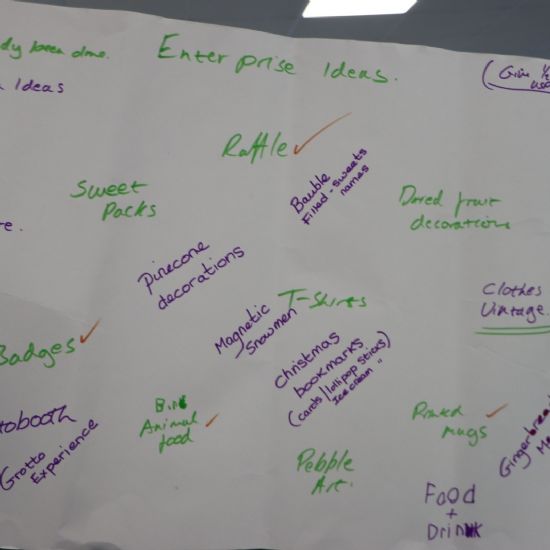 Enterprise Ideas.
been done.
Ideas
(Give
Raffle
Bauble
Filled - sweets
names
Sweet
Packs
Dried fruit
decorations
Pinecone
decorations
Clothes
Vintage.
T-Shirts
Magnetic
Snowmen
Christmas
bookmarks
(cards/lollipop sticks)
Ice cream "
Badges
tobooth
Grotto
Experience
Bird
Animal
food
Printed
mugs
Pebble
Art.
Food
+
Drink